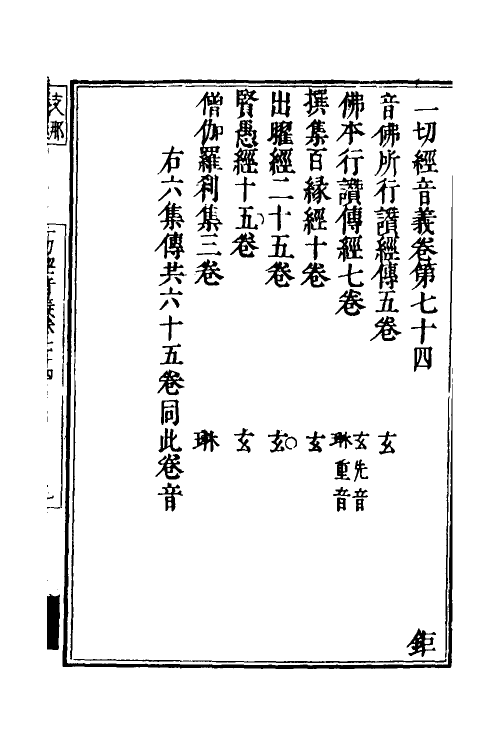 一切經音義卷第七十四
鉅
音佛所行讚經傳五卷 玄
佛本行讚傳經七卷 玄先音 琳重音
撰集百縁經十卷 玄
出曜經二十五卷 玄
賢愚經十五卷 玄
僧伽羅刹集三卷 琳
右六集傳共六十五卷同此卷音